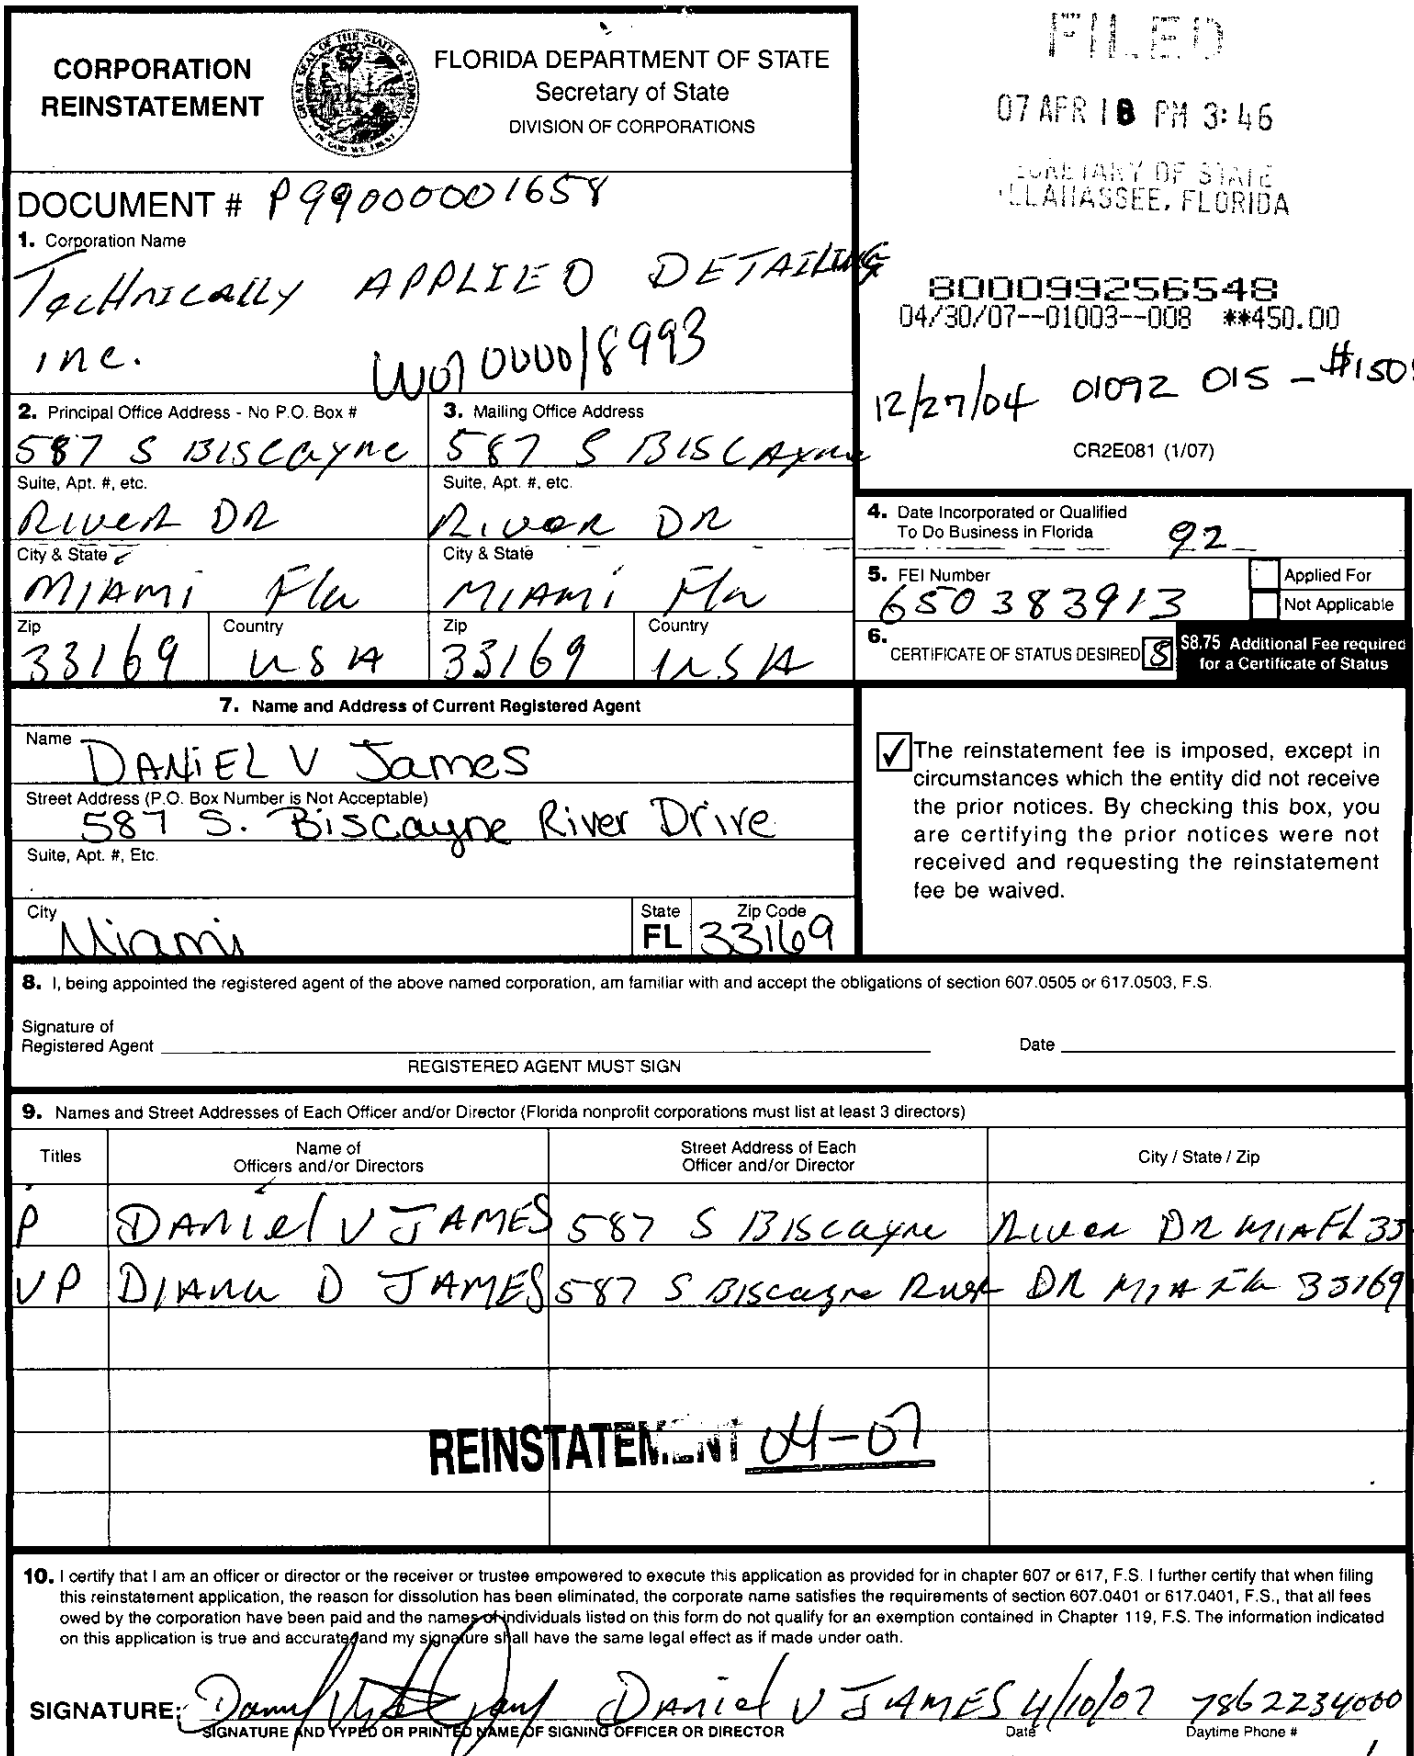 CORPORATION
REINSTATEMENT
FLORIDA DEPARTMENT OF STATE
Secretary of State
DIVISION OF CORPORATIONS
FILED
07 APR 18 PM 3:46
OF STATE
FLORIDA
DOCUMENT # P99000001658
1. Corporation Name
Technically APPLIED DETAILING
inc.
W07000018993
800099256548
04/30/07--01003--008 **450.00
12/27/04 01092 015 - $150
CR2E081 (1/07)
2. Principal Office Address - No P.O. Box #
587 S Biscayne
Suite, Apt. #, etc.
River DR
City & State
MIAMI Fla
Zip
33169
Country
USA
3. Mailing Office Address
587 S BISCAyne
Suite, Apt. #, etc.
River DR
City & State
MIAMI Fla
Zip
33169
Country
USA
4. Date Incorporated or Qualified
To Do Business in Florida
92
5. FEI Number
650383913
Applied For
Not Applicable
6. CERTIFICATE OF STATUS DESIRED
$8.75 Additional Fee required
for a Certificate of Status
7. Name and Address of Current Registered Agent
Name
DANiEL V James
Street Address (P.O. Box Number is Not Acceptable)
587 S. Biscayne River Drive
Suite, Apt. #, Etc.
City
Miami
State
FL
Zip Code
33169
✓ The reinstatement fee is imposed, except in
circumstances which the entity did not receive
the prior notices. By checking this box, you
are certifying the prior notices were not
received and requesting the reinstatement
fee be waived.
8. I, being appointed the registered agent of the above named corporation, am familiar with and accept the obligations of section 607.0505 or 617.0503, F.S.
Signature of
Registered Agent
Date
REGISTERED AGENT MUST SIGN
9. Names and Street Addresses of Each Officer and/or Director (Florida nonprofit corporations must list at least 3 directors)
Titles
Name of
Officers and/or Directors
Street Address of Each
Officer and/or Director
City / State / Zip
P DANiel V JAMES 587 S Biscayne River DR MIA FL 33
VP DIANA D JAMES 587 S Biscayne DR MIA Fla 33169
REINSTATEMENT 04-07
10. I certify that I am an officer or director or the receiver or trustee empowered to execute this application as provided for in chapter 607 or 617, F.S. I further certify that when filing
this reinstatement application, the reason for dissolution has been eliminated, the corporate name satisfies the requirements of section 607.0401 or 617.0401, F.S., that all fees
owed by the corporation have been paid and the names of individuals listed on this form do not qualify for an exemption contained in Chapter 119, F.S. The information indicated
on this application is true and accurate, and my signature shall have the same legal effect as if made under oath.
SIGNATURE: DANiel V JAMES 4/10/07 7862234000
SIGNATURE AND TYPED OR PRINTED NAME OF SIGNING OFFICER OR DIRECTOR
Date
Daytime Phone #